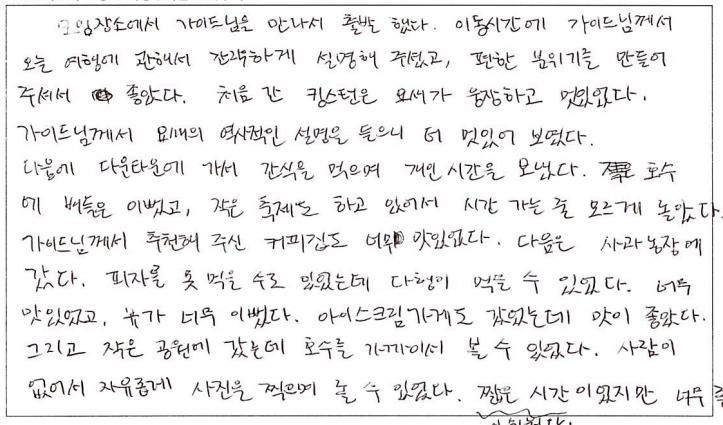 모임장소에서 가이드님을 만나서 출발 했다. 이동시간에 가이드님께서
오늘 여행에 관해서 간략하게 설명해 주셨고, 편한 분위기를 만들어
주셔서 좋았다. 처음 간 킹스턴은 요새가 웅장하고 멋있었다.
가이드님께서 요새의 역사적인 설명을 들으니 더 멋있어 보였다.
다음에 다운타운에 가서 간식을 먹으며 개인 시간을 보냈다. 호수
에 배들은 이뻤고, 작은 축제도 하고 있어서 시간 가는 줄 모르게 놀았다.
가이드님께서 추천해 주신 커피집도 너무 맛있었다. 다음은 사과농장에
갔다. 피자를 못 먹을 수도 있었는데 다행이 먹을 수 있었다. 너무
맛있었고, 뷰가 너무 이뻤다. 아이스크림가게도 갔었는데 맛이 좋았다.
그리고 작은 공원에 갔는데 호수를 가까이서 볼 수 있었다. 사람이
없어서 자유롭게 사진을 찍으며 놀 수 있었다. 짧은 시간이었지만 너무